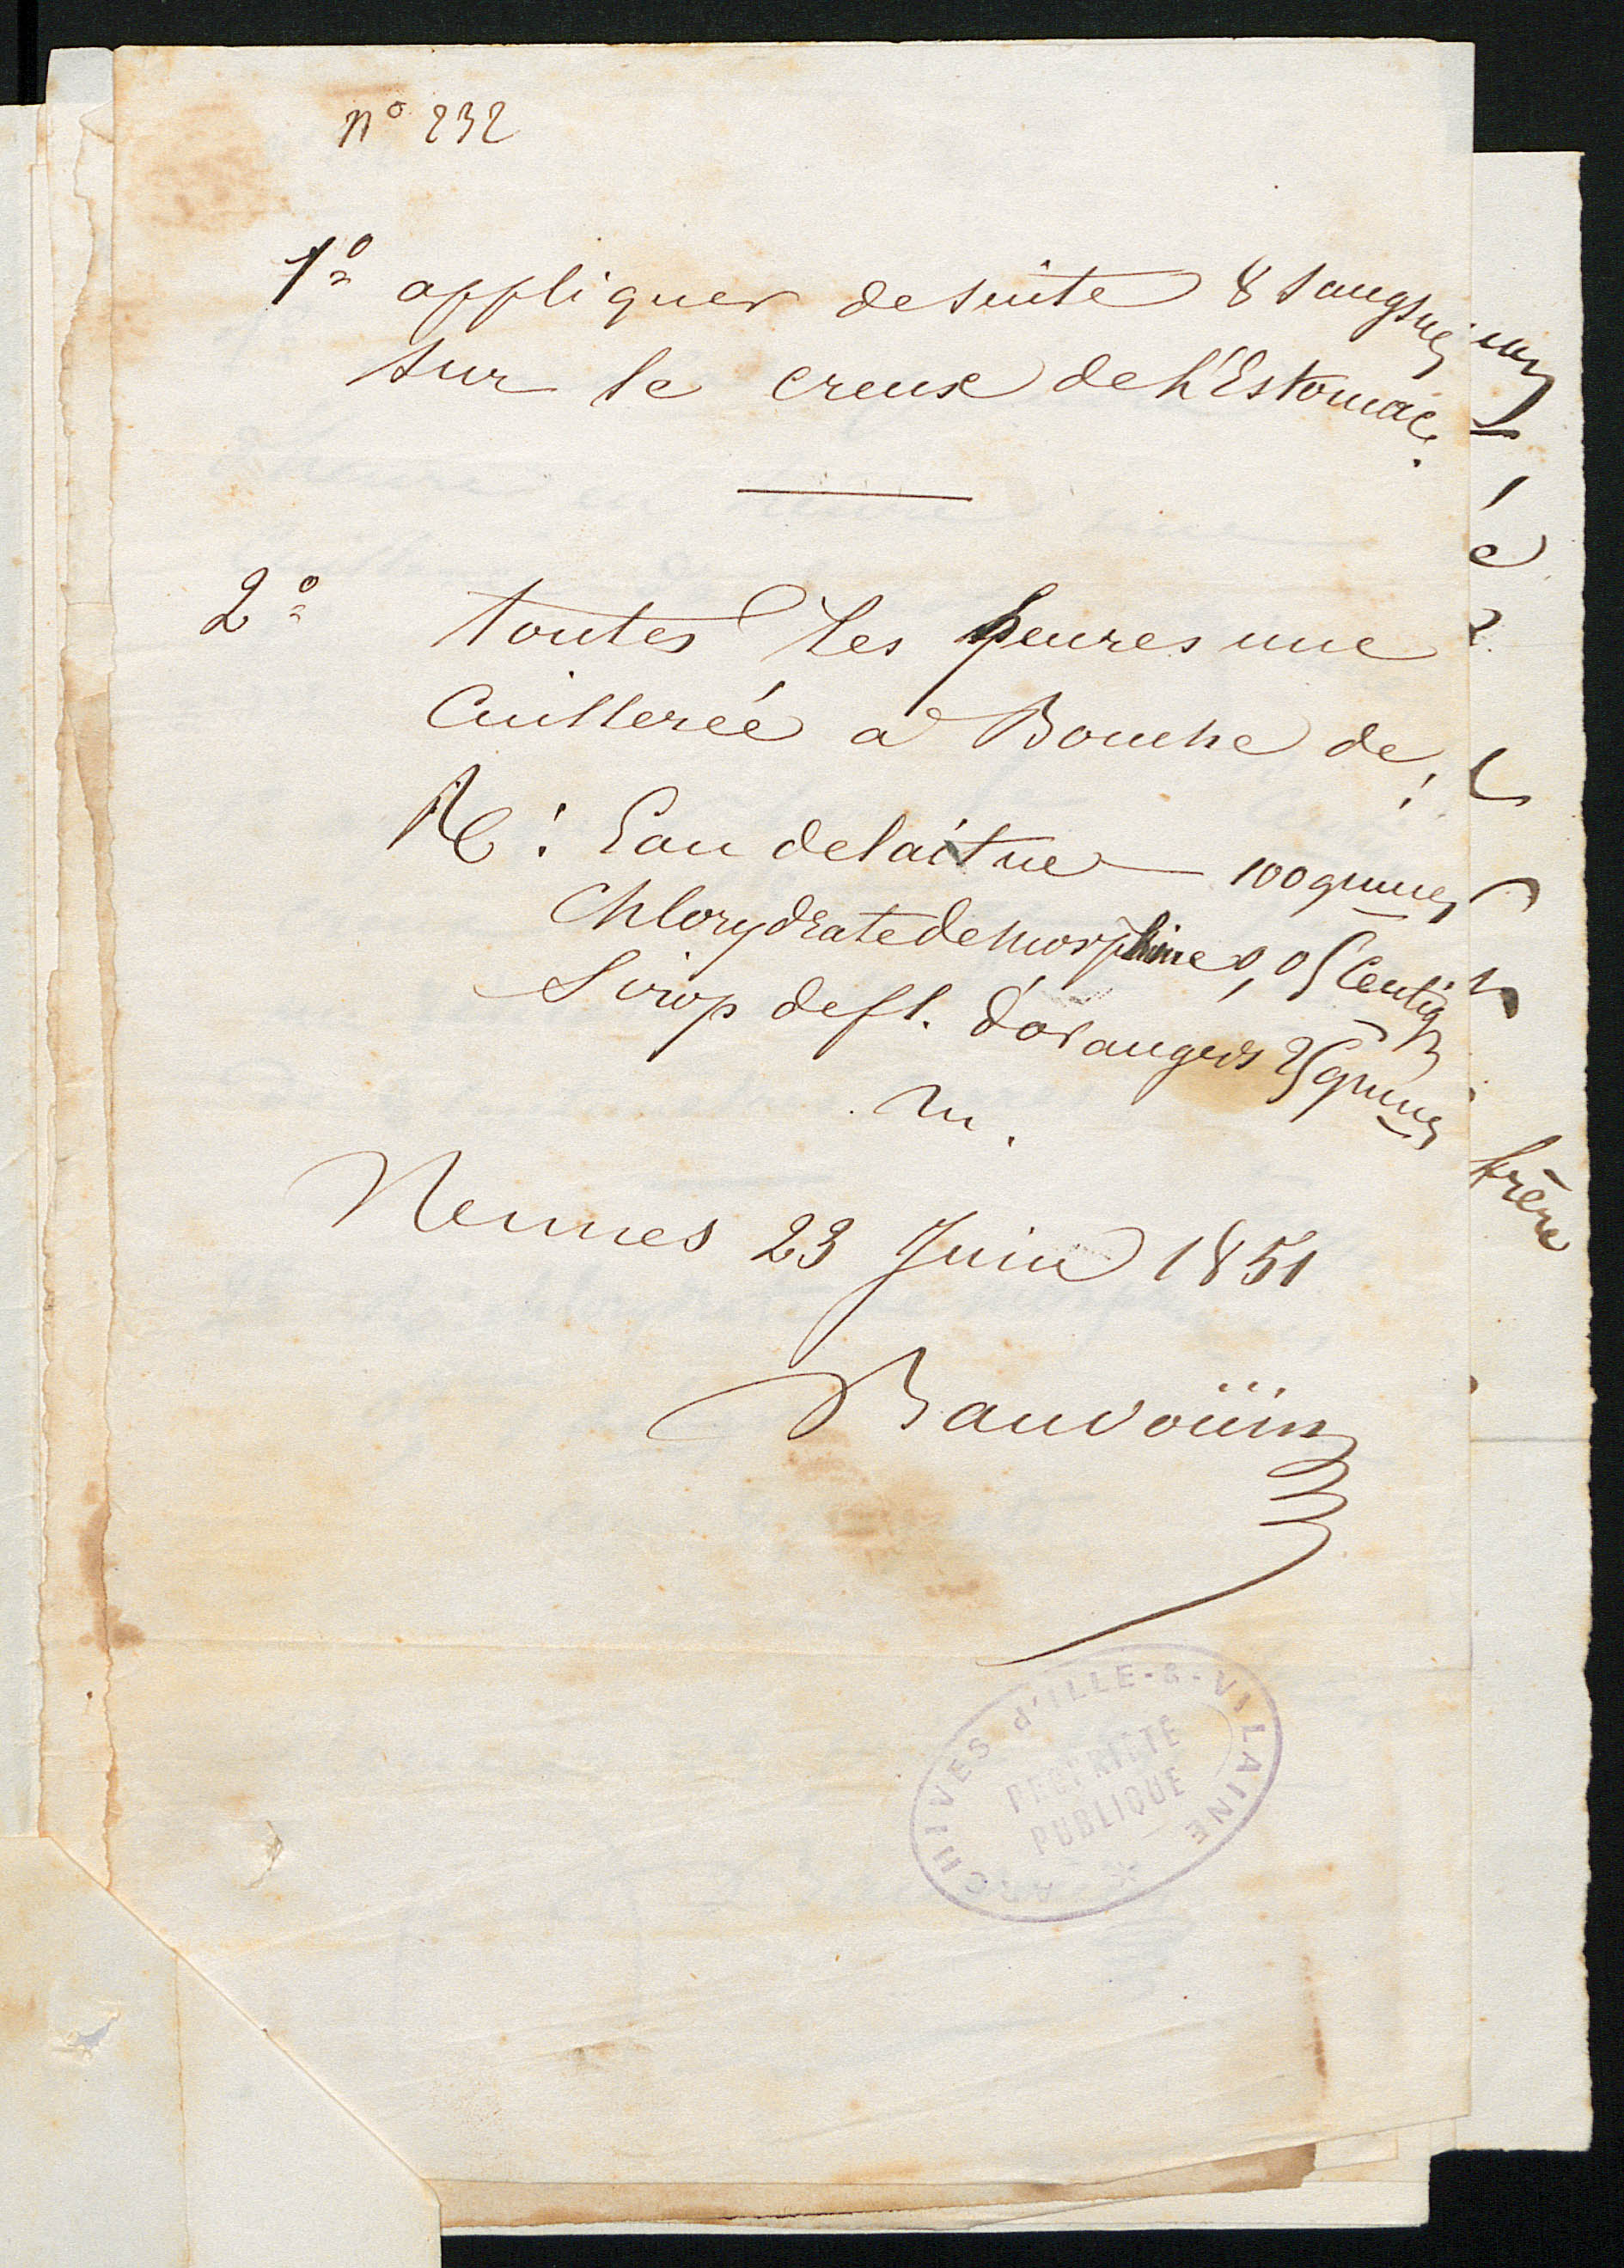 n° 232
1° appliquer de suite 8 sangsues
sur le creux de l'Estomac.
2° toutes les heures une
Cuillerée à Bouche de :
R : Eau de laitue — 100 grmes
Chlorydrate de morphine 0,05 Centig
Sirop de fl. d'orangers 25 grmes
m.
Rennes 23 Juin 1851
Bauvoüin
frère
ARCHIVES d'ILLE-&-VILAINE
PROPRIÉTÉ
PUBLIQUE